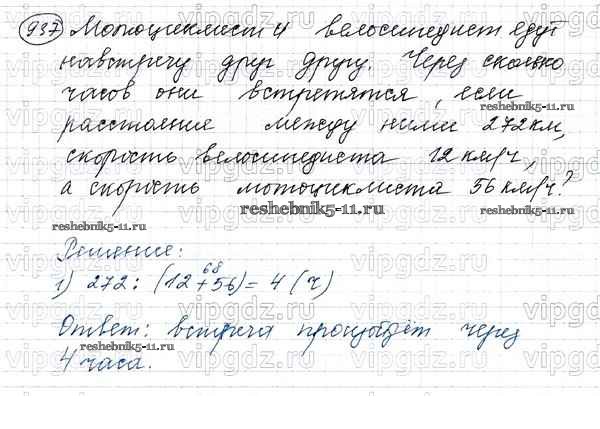 937 Мотоциклист и велосипедист едут
навстречу друг другу. Через сколько
часов они встретятся, если
reshebnik5-11.ru
расстояние между ними 272 км,
скорость велосипедиста 12 км/ч,
а скорость мотоциклиста 56 км/ч?
reshebnik5-11.ru
reshebnik5-11.ru
Решение:
68
1) 272 : (12 + 56) = 4 (ч)
Ответ: встреча произойдёт через
reshebnik5-11.ru
4 часа.
reshebnik5-11.ru
vipgdz.ru